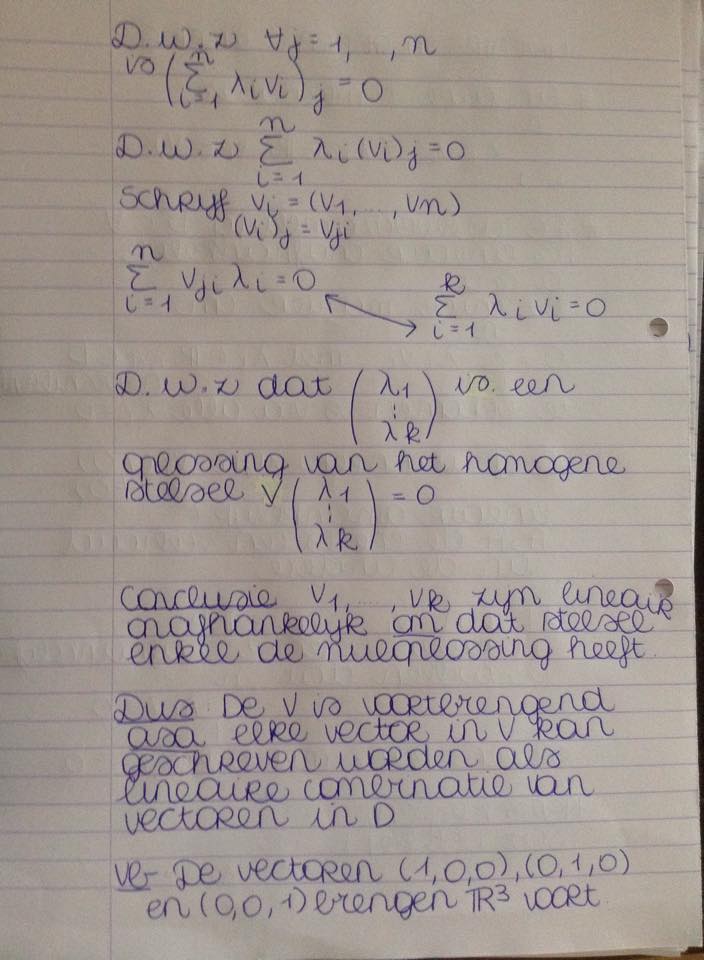 D.w.z ∀j = 1, ..., n
is (∑_{i=1}^{n} λi vi)_j = 0
D.w.z ∑_{i=1}^{n} λi (vi)_j = 0
Schrijf vi = (v1, ..., vn)
(vi)_j = vji
∑_{i=1}^{n} vji λi = 0 ⟷ ∑_{i=1}^{k} λi vi = 0
D.w.z dat (λ1 ⋮ λk) is een
oplossing van het homogene
stelsel V (λ1 ⋮ λk) = 0
Conclusie v1, ..., vk zijn lineair
onafhankelijk om dat stelsel
enkel de nuloplossing heeft.
Dus De V is voortbrengend
asa elke vector in V kan
geschreven worden als
lineaire combinatie van
vectoren in D
De vectoren (1,0,0), (0,1,0)
en (0,0,1) brengen ℝ³ voort